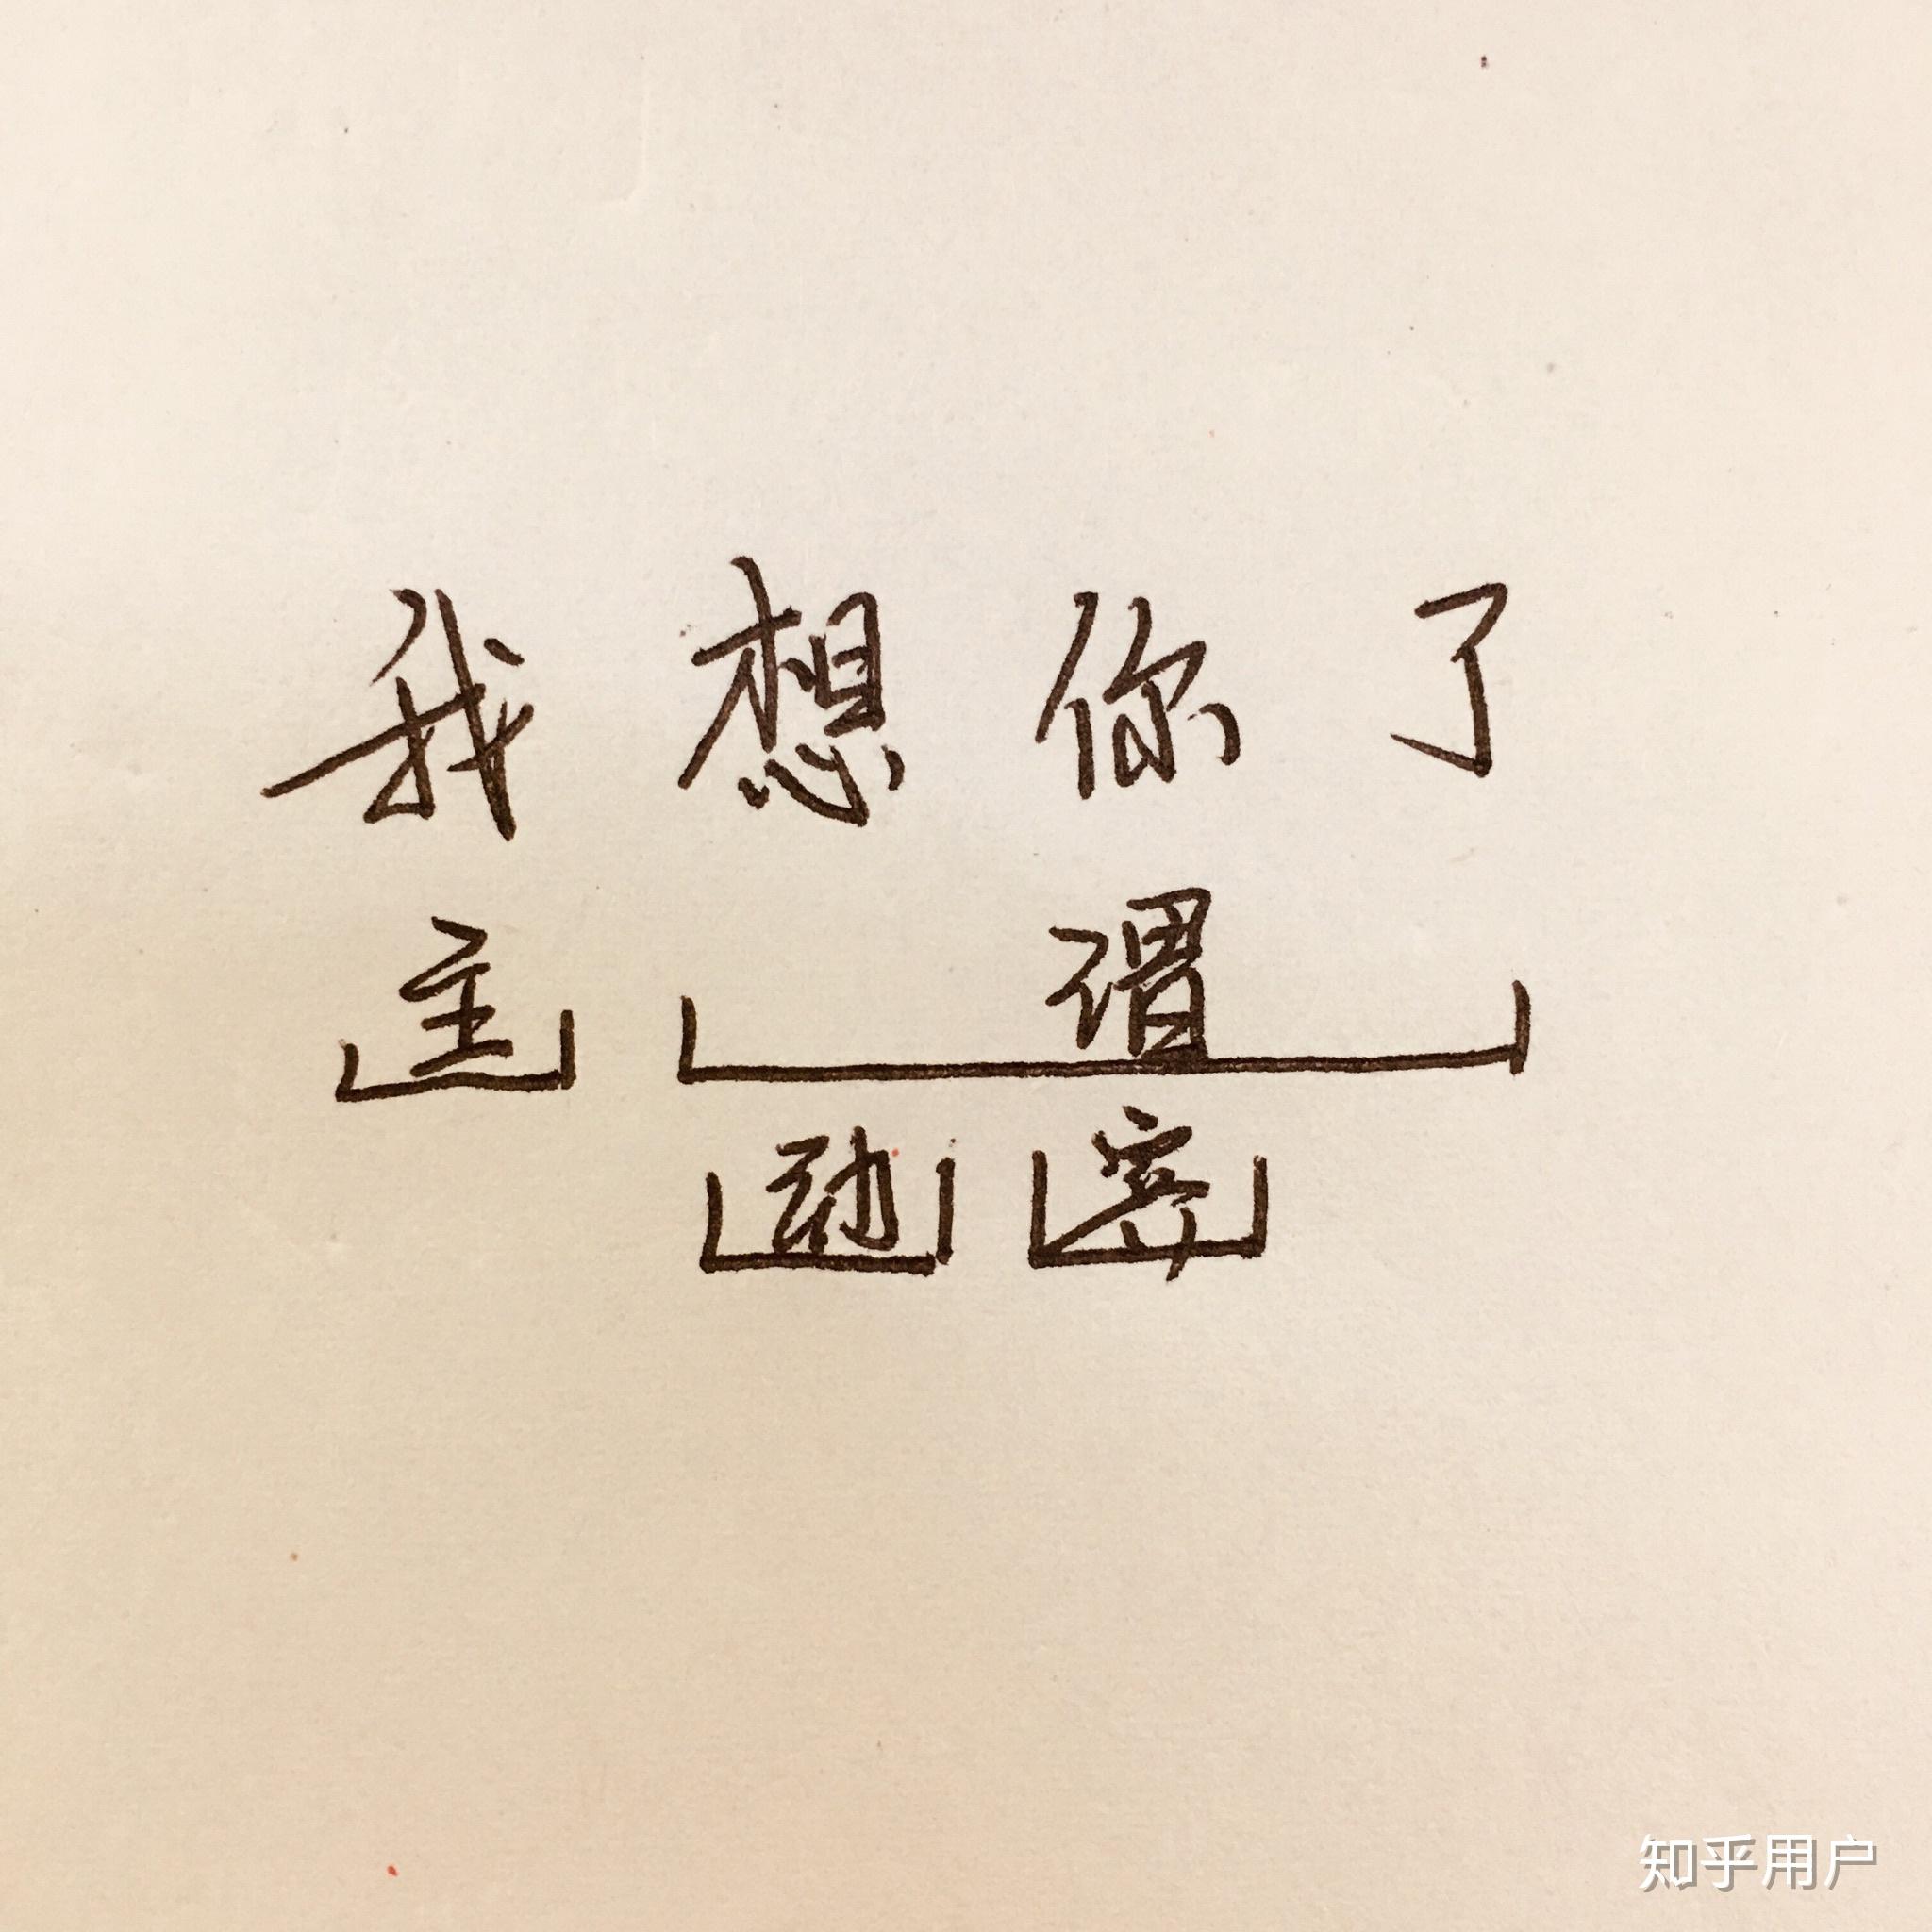 我想你了
主 谓
动 宾
知乎用户